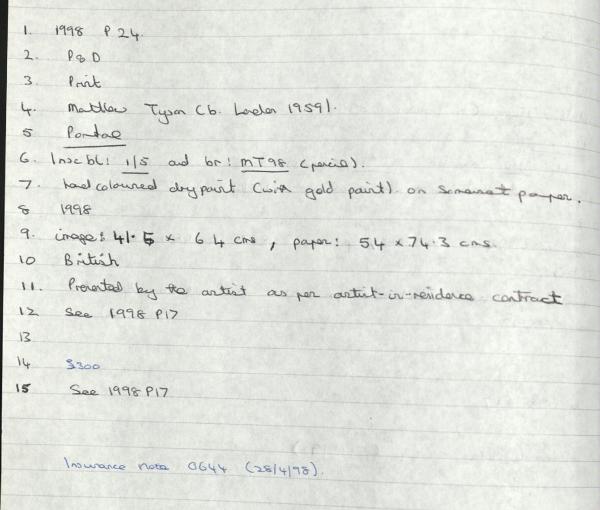 1. 1998 P 24.
2. P&D
3 Print
4. Matthew Tyson (b. London 1959).
5 Pontae
6. Insc bl: 1/5 and br: MT98 (pencil).
7. hand coloured drypoint (with gold paint) on Somerset paper.
8 1998
9. image: 41.5 x 64 cms, paper: 54 x 74.3 cms.
10 British
11. Presented by the artist as per artist-in-residence contract
12 See 1998 P17
13
14 £300
15 See 1998 P17
Insurance note 0644 (28/4/98).